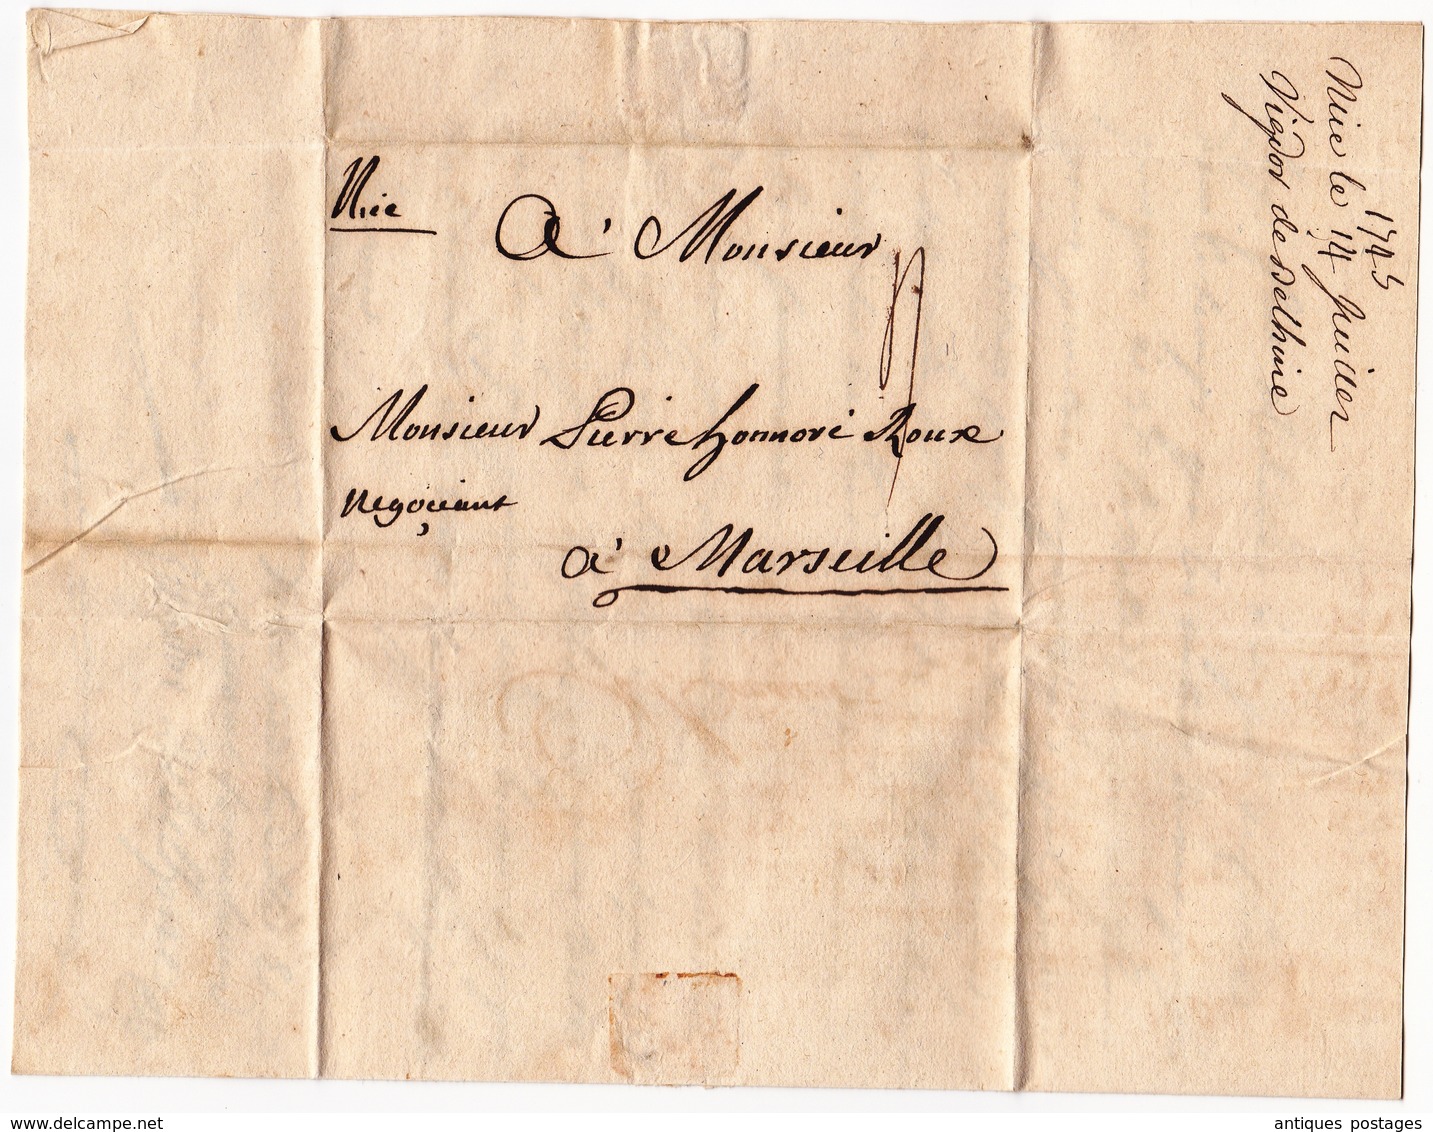 Nice
A' Monsieur
Monsieur Pierre honnoré Roux
negoçiant
a' Marseille
1743
Nice le 14 Juillet
Vigdor de
www.delcampe.net
antiques postages